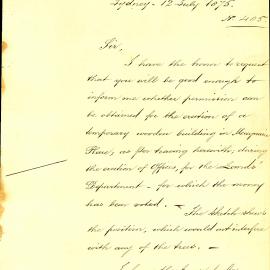 Sydney - 12 July 1875.
No. 405
Sir,
I have the honor to request
that you will be good enough to
inform me whether permission can
be obtained for the erection of a
temporary wooden building in Macquarie
Place, as per tracing herewith; during
the erection of Offices, for the Lands'
Department - for which the money
has been voted. - The Sketch shews
the position, which would not interfere
with any of the trees. -